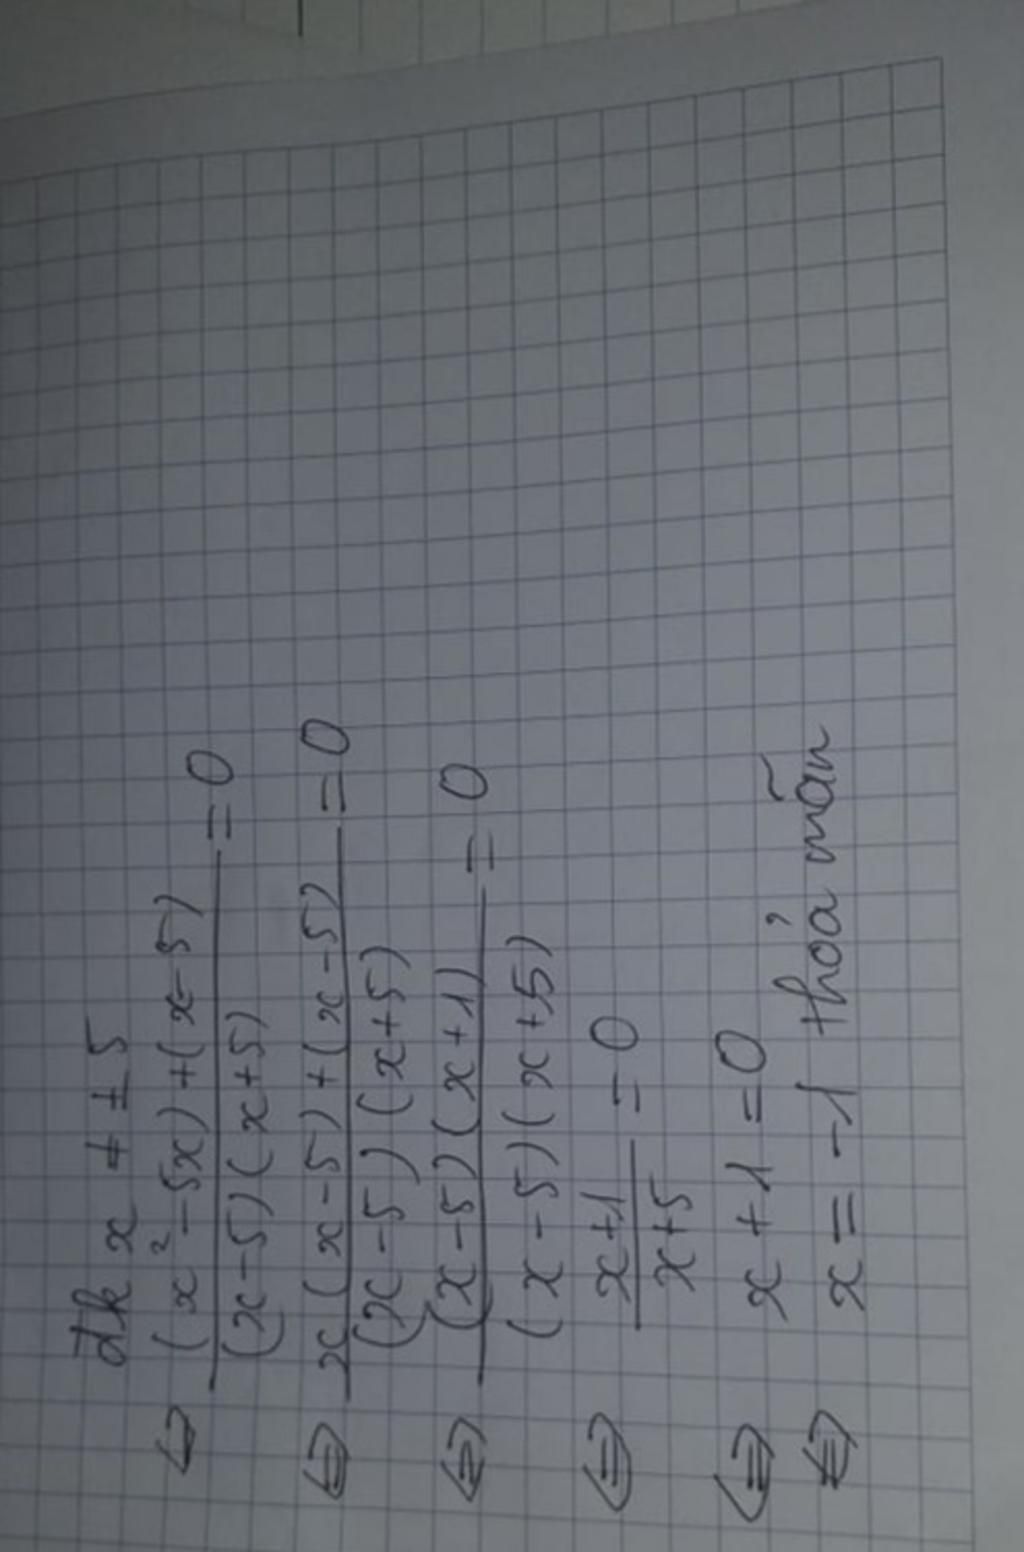 đk x ≠ ±5
⇔ ((x² - 5x) + (x - 5))/((x - 5)(x + 5)) = 0
⇔ (x(x - 5) + (x - 5))/((x - 5)(x + 5)) = 0
⇔ ((x - 5)(x + 1))/((x - 5)(x + 5)) = 0
⇔ (x + 1)/(x + 5) = 0
⇔ x + 1 = 0
⇔ x = -1 thoả mãn